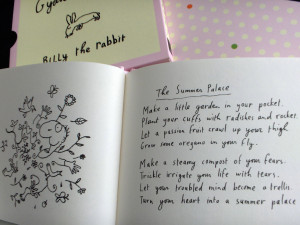 Billy the rabbit
The Summer Palace
Make a little garden in your pocket.
Plant your cuffs with radishes and rocket.
Let a passion fruit crawl up your thigh.
Grow some oregano in your fly.
Make a steamy compost of your fears.
Trickle irrigate your life with tears.
Let your troubled mind become a trellis.
Turn your heart into a summer palace